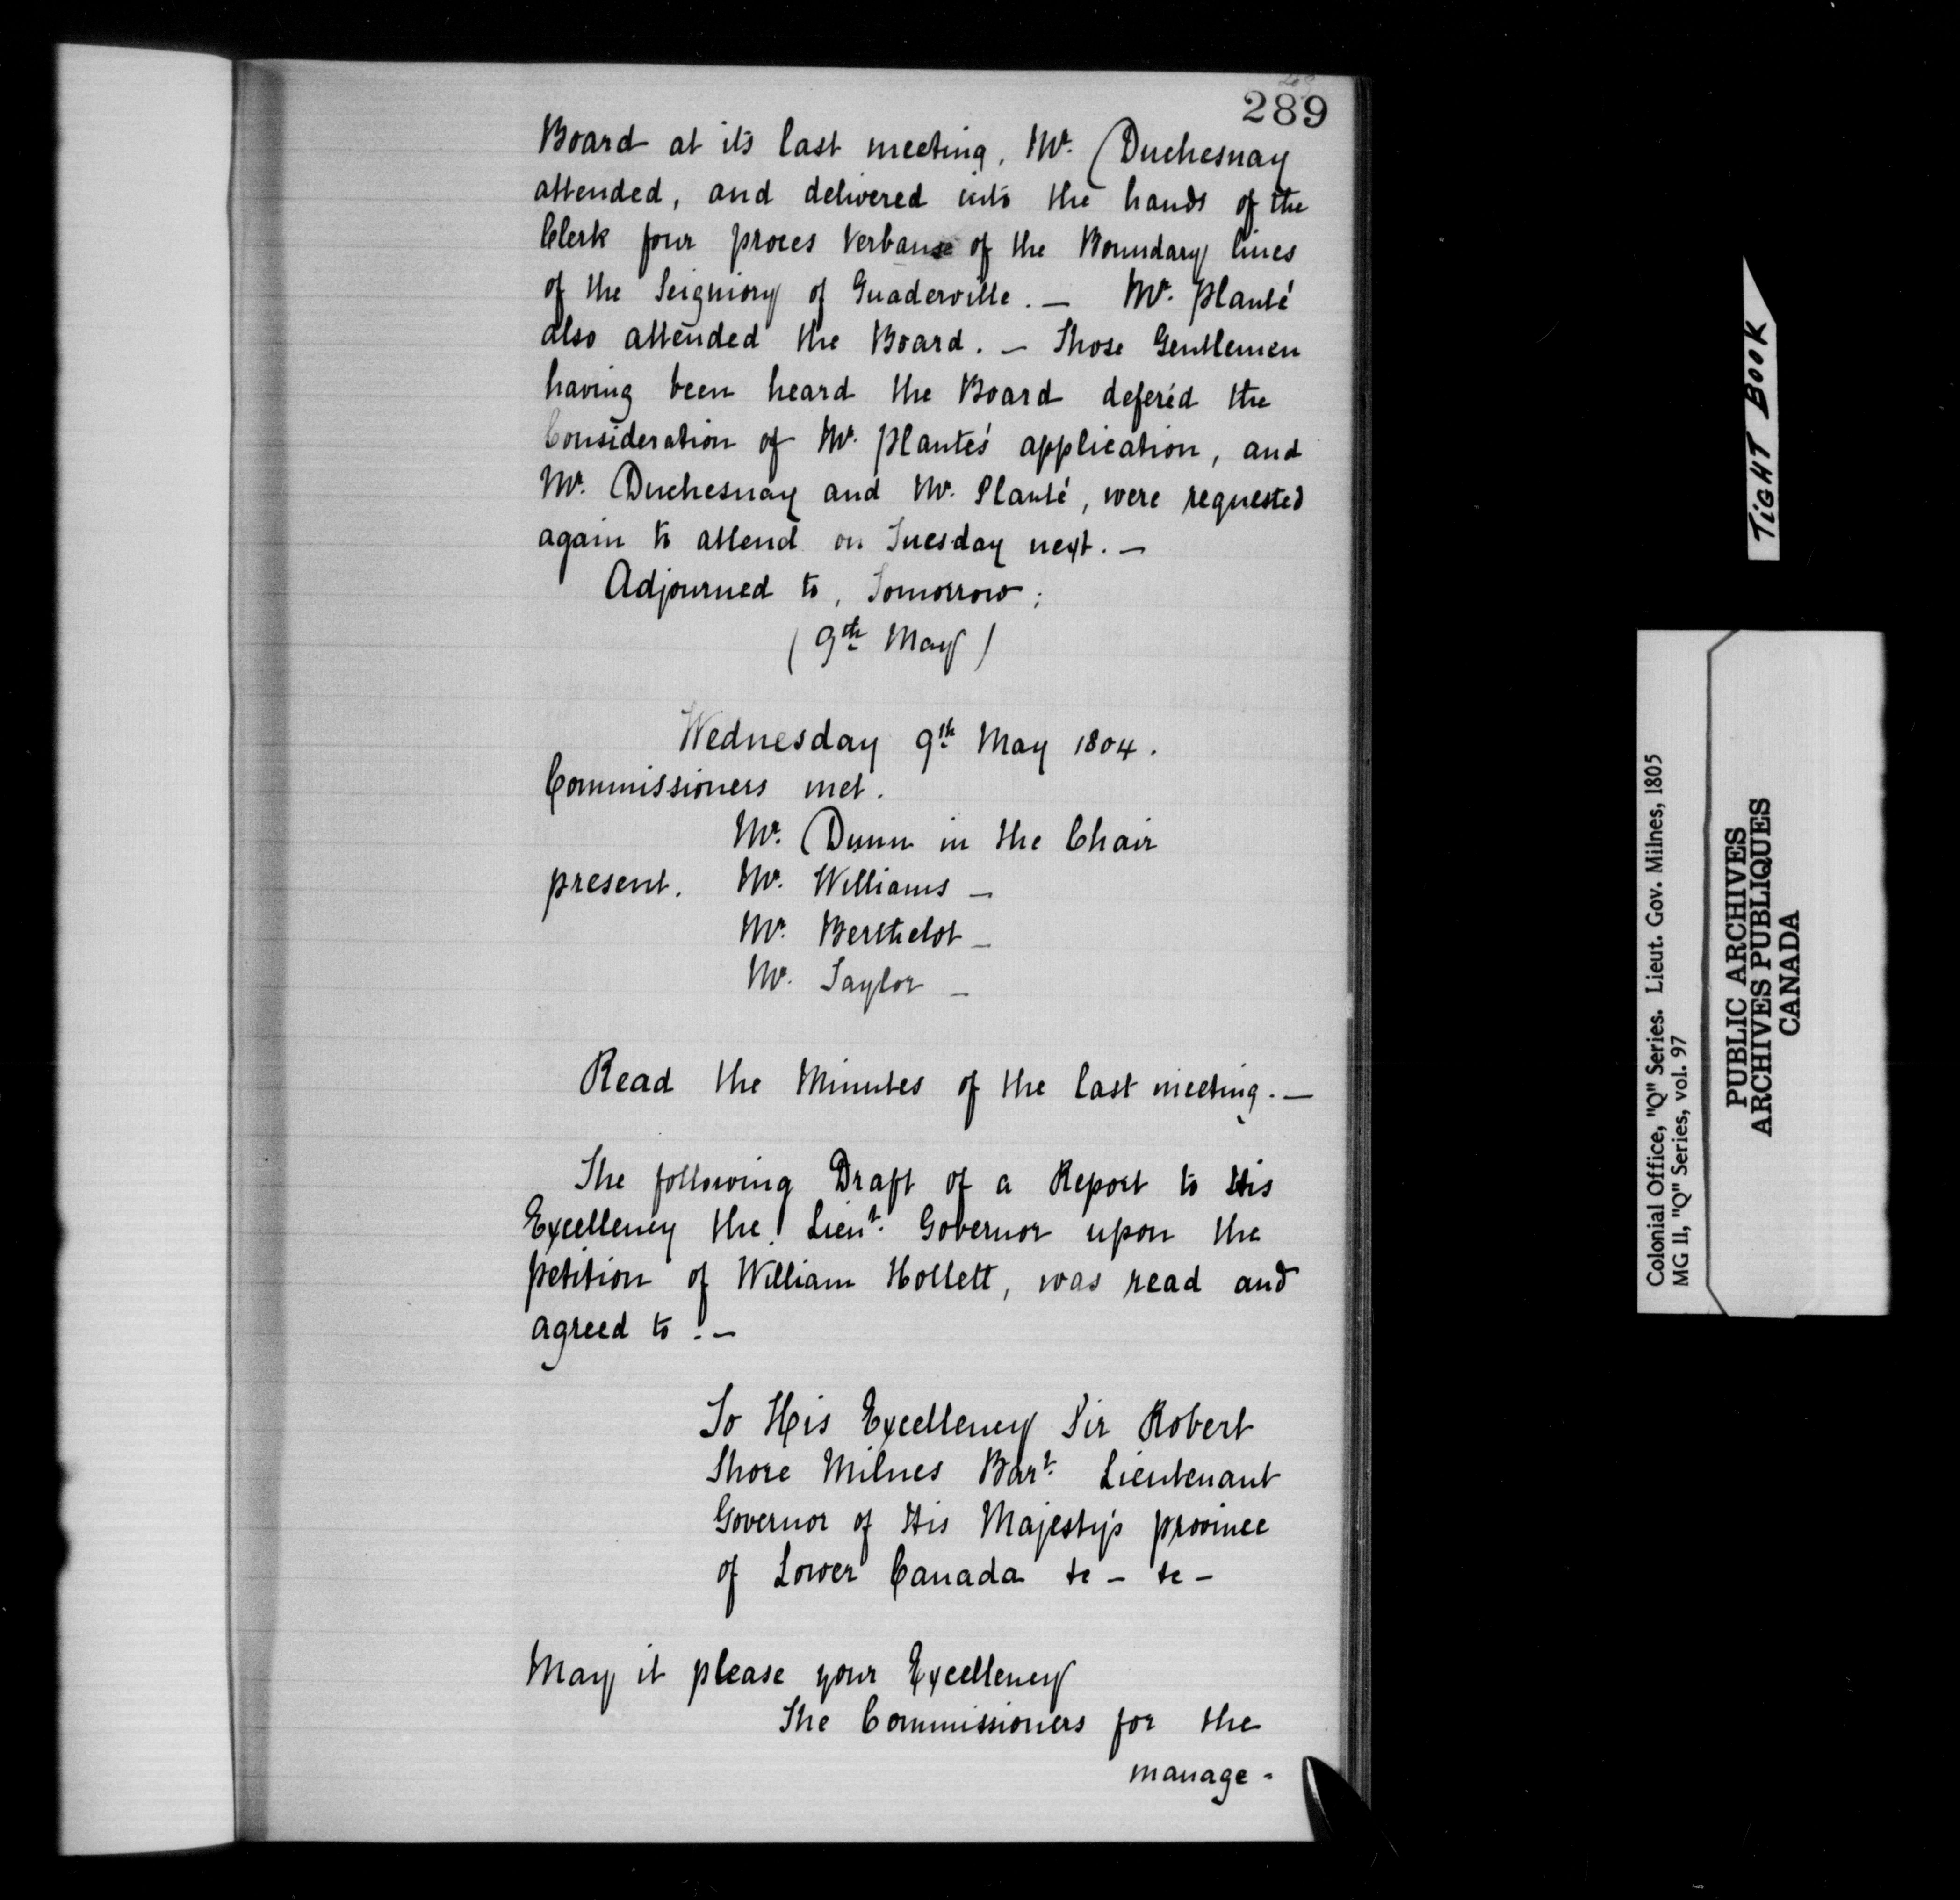 289
Board at its last meeting, Mr. Duchesnay
attended, and delivered into the hands of the
Clerk four proces Verbause of the Boundary lines
of the Seigniory of Guaderville. — Mr. Planté
also attended the Board. — Those Gentlemen
having been heard the Board defer'd the
Consideration of Mr. Planté's application, and
Mr. Duchesnay and Mr. Planté, were requested
again to attend on Tuesday next. —
Adjourned to, Tomorrow;
(9th May)
Wednesday 9th May 1804.
Commissioners met.
Mr. Dunn in the Chair
present. Mr. Williams —
Mr. Berthelot —
Mr. Taylor —
Read the Minutes of the last meeting. —
The following Draft of a Report to His
Excellency the Lieut. Governor upon the
petition of William Hollett, was read and
agreed to. —
To His Excellency Sir Robert
Shore Milnes Bart. Lieutenant
Governor of His Majesty's province
of Lower Canada &c — &c —
May it please your Excellency
The Commissioners for the
manage-
TIGHT BOOK
Colonial Office, "Q" Series. Lieut. Gov. Milnes, 1805
MG II, "Q" Series, vol. 97
PUBLIC ARCHIVES
ARCHIVES PUBLIQUES
CANADA